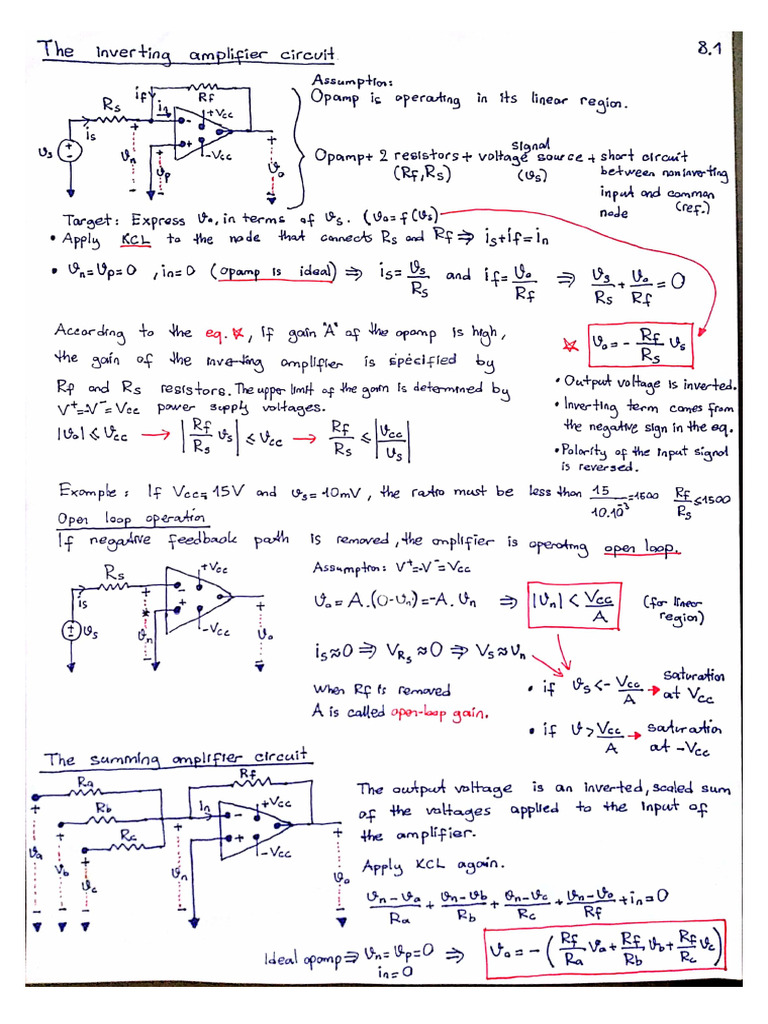 The inverting amplifier circuit 8.1
Assumption:
Opamp is operating in its linear region.
if Rf
Rs in +Vcc
is - +
vs + - vn vp -Vcc vo
Opamp + 2 resistors + voltage source + short circuit
signal
(Rf, Rs) (vs) between noninverting
input and common
node (ref.)
Target: Express vo, in terms of vs. (vo = f(vs))
• Apply KCL to the node that connects Rs and Rf ⇒ is + if = in
• vn = vp = 0, in = 0 (opamp is ideal) ⇒ is = vs/Rs and if = vo/Rf ⇒ vs/Rs + vo/Rf = 0
According to the eq. ☆, if gain "A" of the opamp is high,
☆ vo = - Rf/Rs vs
the gain of the inverting amplifier is specified by
Rf and Rs resistors. The upper limit of the gain is determined by
V⁺=-V⁻=Vcc power supply voltages.
• Output voltage is inverted.
• Inverting term comes from
the negative sign in the eq.
• Polarity of the input signal
is reversed.
|vo| ≤ Vcc → |Rf/Rs vs| ≤ Vcc → Rf/Rs ≤ |Vcc/vs|
Example: If Vcc = 15V and vs = 10mV, the ratio must be less than 15/10.10⁻³ = 1500 Rf/Rs ≤ 1500
Open loop operation
If negative feedback path is removed, the amplifier is operating open loop.
Rs +Vcc
is - +
+ - vs vn -Vcc vo
Assumption: V⁺=-V⁻=Vcc
vo = A.(0-vn) = -A.vn ⇒ |vn| < Vcc/A (for linear
region)
is ≈ 0 ⇒ VRs ≈ 0 ⇒ Vs ≈ vn
When Rf is removed
A is called open-loop gain.
• if vs < - Vcc/A → saturation
at Vcc
• if v > Vcc/A → saturation
at -Vcc
The summing amplifier circuit
Ra Rf
Rb in +Vcc
Rc - +
va vb vc vn -Vcc vo
The output voltage is an inverted, scaled sum
of the voltages applied to the input of
the amplifier.
Apply KCL again.
vn-va/Ra + vn-vb/Rb + vn-vc/Rc + vn-vo/Rf + in = 0
Ideal opamp ⇒ vn = vp = 0 ⇒ vo = - (Rf/Ra va + Rf/Rb vb + Rf/Rc vc)
in = 0